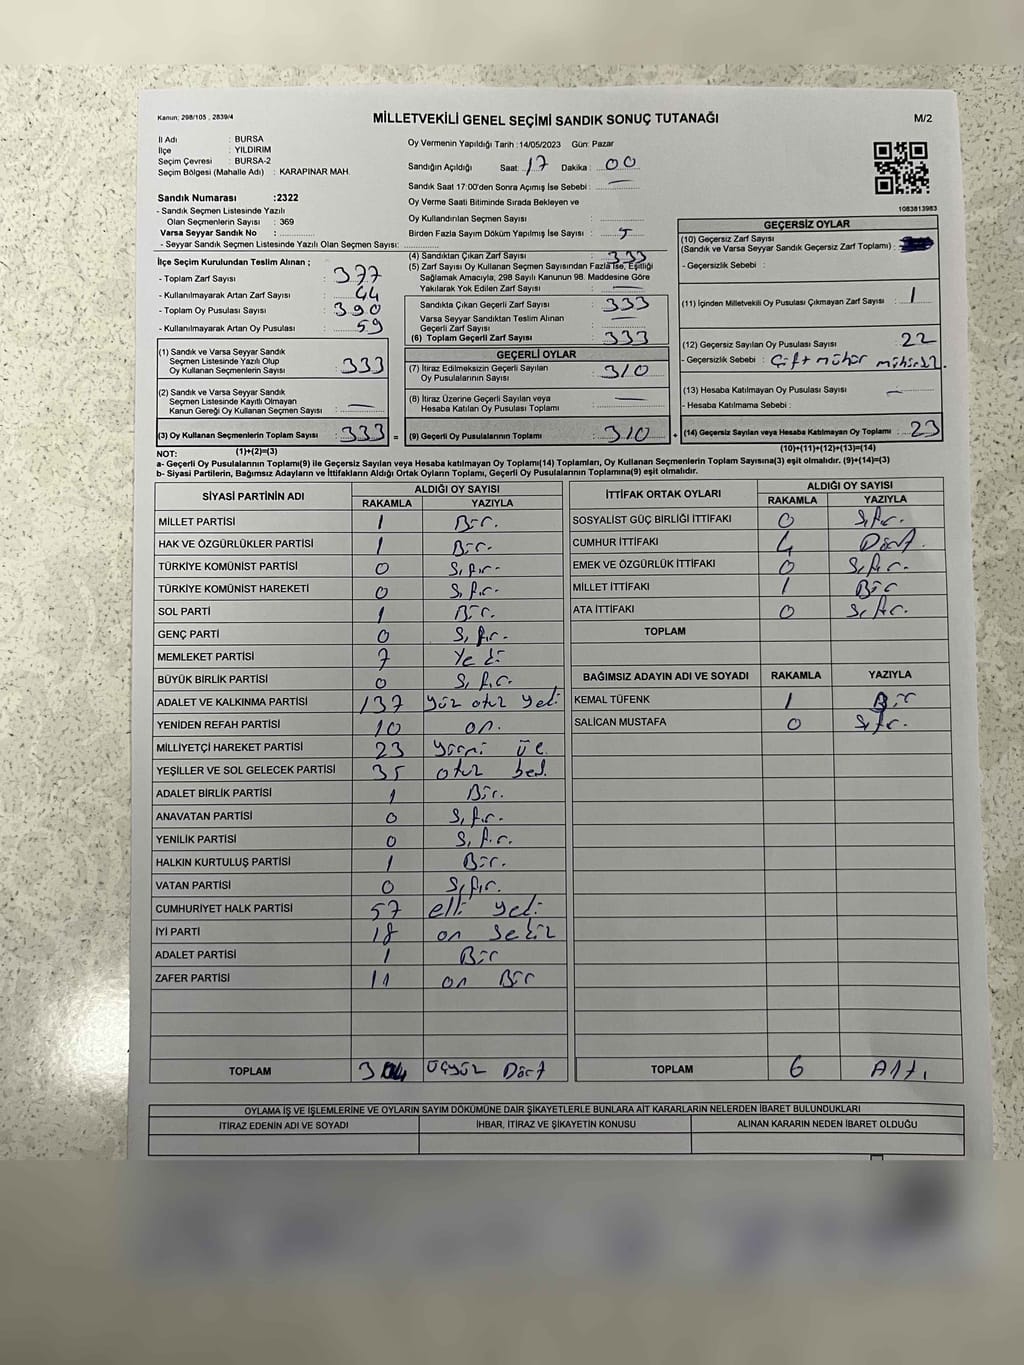 Kanun; 298/105 , 2839/4
MİLLETVEKİLİ GENEL SEÇİMİ SANDIK SONUÇ TUTANAĞI
M/2
İl Adı : BURSA
İlçe : YILDIRIM
Seçim Çevresi : BURSA-2
Seçim Bölgesi (Mahalle Adı) : KARAPINAR MAH.
Sandık Numarası :2322
- Sandık Seçmen Listesinde Yazılı
Olan Seçmenlerin Sayısı : 369
Varsa Seyyar Sandık No :
- Seyyar Sandık Seçmen Listesinde Yazılı Olan Seçmen Sayısı:
Oy Vermenin Yapıldığı Tarih :14/05/2023 Gün: Pazar
Sandığın Açıldığı Saat: 17 Dakika : 00
Sandık Saat 17:00'den Sonra Açımış İse Sebebi : —
Oy Verme Saati Bitiminde Sırada Bekleyen ve
Oy Kullandırılan Seçmen Sayısı :
Birden Fazla Sayım Döküm Yapılmış İse Sayısı :
1083813983
İlçe Seçim Kurulundan Teslim Alınan ;
- Toplam Zarf Sayısı : 377
- Kullanılmayarak Artan Zarf Sayısı : 44
- Toplam Oy Pusulası Sayısı : 390
- Kullanılmayarak Artan Oy Pusulası : 59
(1) Sandık ve Varsa Seyyar Sandık
Seçmen Listesinde Yazılı Olup
Oy Kullanan Seçmenlerin Sayısı : 333
(2) Sandık ve Varsa Seyyar Sandık
Seçmen Listesinde Kayıtlı Olmayan
Kanun Gereği Oy Kullanan Seçmen Sayısı : —
(3) Oy Kullanan Seçmenlerin Toplam Sayısı : 333 =
(4) Sandıktan Çıkan Zarf Sayısı : 333
(5) Zarf Sayısı Oy Kullanan Seçmen Sayısından Fazla İse, Eşitliği
Sağlamak Amacıyla, 298 Sayılı Kanunun 98. Maddesine Göre
Yakılarak Yok Edilen Zarf Sayısı : —
Sandıkta Çıkan Geçerli Zarf Sayısı : 333
Varsa Seyyar Sandıktan Teslim Alınan
Geçerli Zarf Sayısı : —
(6) Toplam Geçerli Zarf Sayısı : 333
GEÇERLİ OYLAR
(7) İtiraz Edilmeksizin Geçerli Sayılan
Oy Pusulalarının Sayısı : 310
(8) İtiraz Üzerine Geçerli Sayılan veya
Hesaba Katılan Oy Pusulası Toplamı : —
(9) Geçerli Oy Pusulalarının Toplamı : 310 +
GEÇERSİZ OYLAR
(10) Geçersiz Zarf Sayısı
(Sandık ve Varsa Seyyar Sandık Geçersiz Zarf Toplamı) :
- Geçersizlik Sebebi :
(11) İçinden Milletvekili Oy Pusulası Çıkmayan Zarf Sayısı : 1
(12) Geçersiz Sayılan Oy Pusulası Sayısı : 22
- Geçersizlik Sebebi : Çift mühür
(13) Hesaba Katılmayan Oy Pusulası Sayısı : —
- Hesaba Katılmama Sebebi :
(14) Geçersiz Sayılan veya Hesaba Katılmayan Oy Toplamı : 23
NOT: (1)+(2)=(3) (10)+(11)+(12)+(13)=(14)
a- Geçerli Oy Pusulalarının Toplamı(9) ile Geçersiz Sayılan veya Hesaba katılmayan Oy Toplamı(14) Toplamları, Oy Kullanan Seçmenlerin Toplam Sayısına(3) eşit olmalıdır. (9)+(14)=(3)
b- Siyasi Partilerin, Bağımsız Adayların ve İttifakların Aldığı Ortak Oyların Toplamı, Geçerli Oy Pusulalarının Toplamına(9) eşit olmalıdır.
SİYASİ PARTİNİN ADI ALDIĞI OY SAYISI
RAKAMLA YAZIYLA
MİLLET PARTİSİ 1 Bir.
HAK VE ÖZGÜRLÜKLER PARTİSİ 1 Bir.
TÜRKİYE KOMÜNİST PARTİSİ 0 Sıfır.
TÜRKİYE KOMÜNİST HAREKETİ 0 Sıfır.
SOL PARTİ 1 Bir.
GENÇ PARTİ 0 Sıfır.
MEMLEKET PARTİSİ 7 Yedi
BÜYÜK BİRLİK PARTİSİ 0 Sıfır.
ADALET VE KALKINMA PARTİSİ 137 yüz otuz yedi
YENİDEN REFAH PARTİSİ 10 on.
MİLLİYETÇİ HAREKET PARTİSİ 23 yirmi üç
YEŞİLLER VE SOL GELECEK PARTİSİ 35 otuz beş.
ADALET BİRLİK PARTİSİ 1 Bir.
ANAVATAN PARTİSİ 0 Sıfır.
YENİLİK PARTİSİ 0 Sıfır.
HALKIN KURTULUŞ PARTİSİ 1 Bir.
VATAN PARTİSİ 0 Sıfır.
CUMHURİYET HALK PARTİSİ 57 elli yedi
İYİ PARTİ 18 on sekiz
ADALET PARTİSİ 1 Bir
ZAFER PARTİSİ 11 on Bir
TOPLAM 304 üçyüz Dört
İTTİFAK ORTAK OYLARI ALDIĞI OY SAYISI
RAKAMLA YAZIYLA
SOSYALİST GÜÇ BİRLİĞİ İTTİFAKI 0 Sıfır.
CUMHUR İTTİFAKI 4 Dört.
EMEK VE ÖZGÜRLÜK İTTİFAKI 0 Sıfır.
MİLLET İTTİFAKI 1 Bir
ATA İTTİFAKI 0 Sıfır.
TOPLAM
BAĞIMSIZ ADAYIN ADI VE SOYADI RAKAMLA YAZIYLA
KEMAL TÜFENK 1 Bir
SALİCAN MUSTAFA 0 Sıfır.
TOPLAM 6 Altı
OYLAMA İŞ VE İŞLEMLERİNE VE OYLARIN SAYIM DÖKÜMÜNE DAİR ŞİKAYETLERLE BUNLARA AİT KARARLARIN NELERDEN İBARET BULUNDUKLARI
İTİRAZ EDENİN ADI VE SOYADI İHBAR, İTİRAZ VE ŞİKAYETİN KONUSU ALINAN KARARIN NEDEN İBARET OLDUĞU